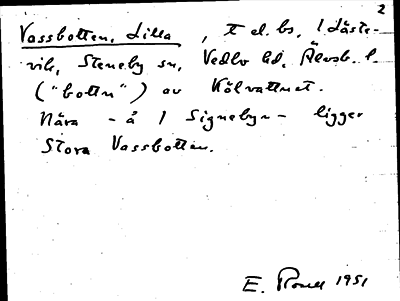 2
Vassbotten, Lilla, t el. bs, 1 Låste-
vik, Steneby sn, Vedbo hd, Älvsb. l.
("bottn") av Kölvattnet.
Nära - å 1 Signebyn - ligger
Stora Vassbotten.
E. 1951